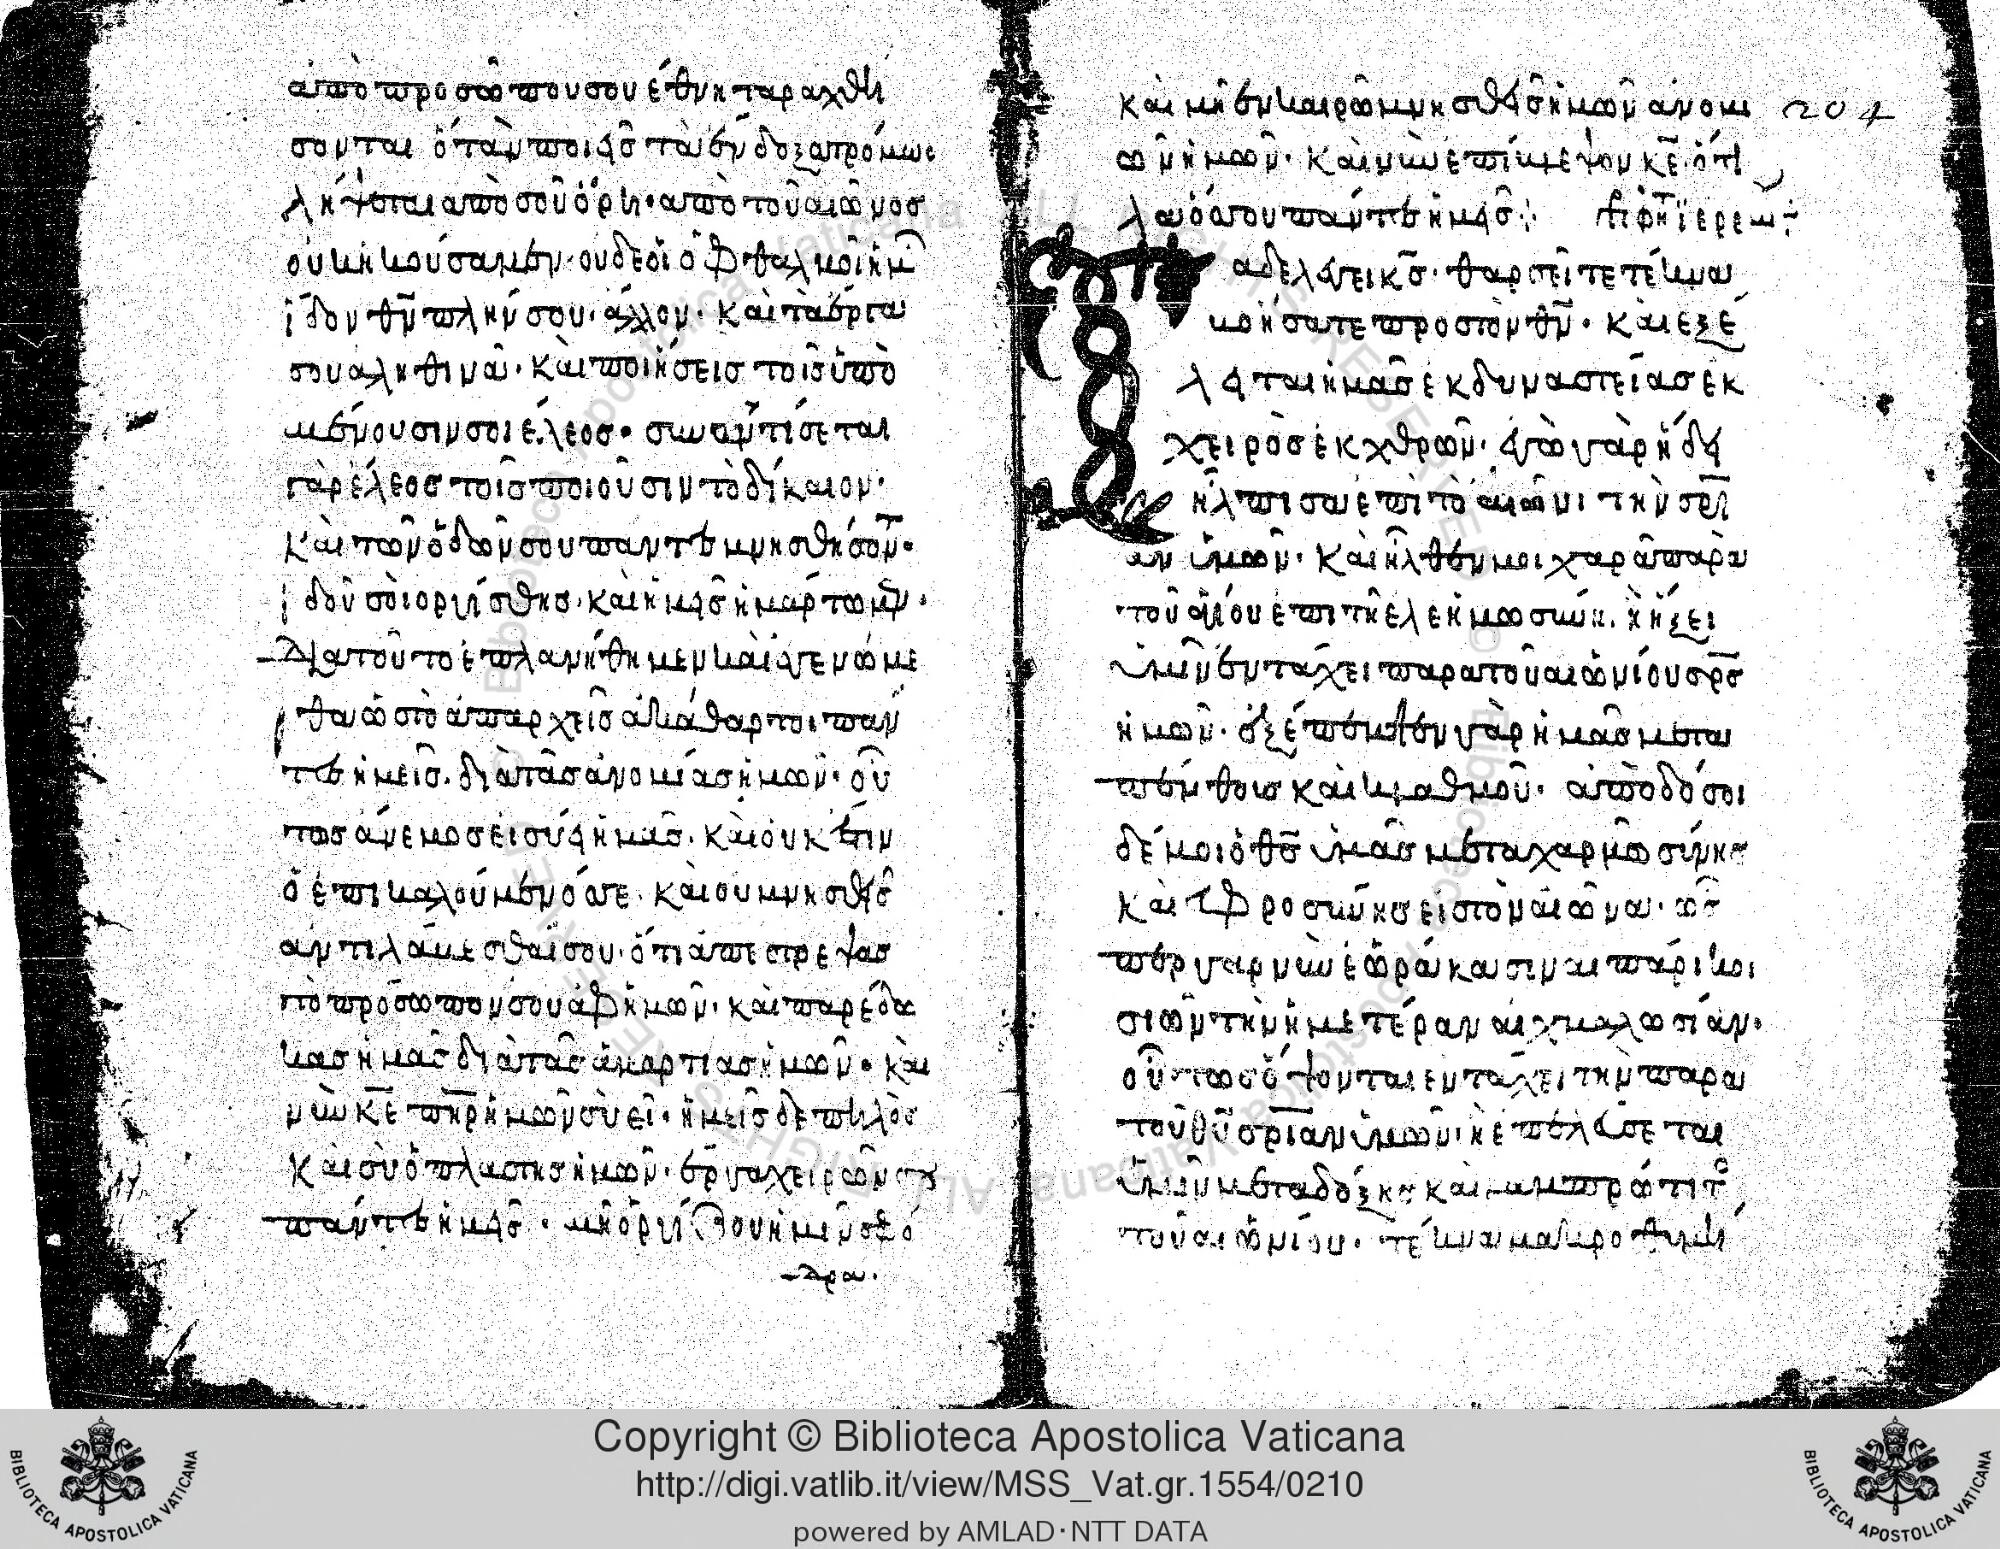 ἀπὸ προσώπου σου ἔθνη ταραχθή
σονται ὅταν ποιῇς τὰ ἔνδοξα τρόμος
λήψεται ἀπὸ σοῦ ὄρη· ἀπὸ τοῦ αἰῶνος
οὐκ ἠκούσαμεν· οὐδὲ οἱ ὀφθαλμοὶ ἡμ
ἴδον θν πλήν σου ἄλλον· καὶ τὰ ἔργα
σου ἀληθινὰ· καὶ ποιήσεις τοῖς ὑπο
μένουσιν σοι ἔλεος· συναντίσεται
γὰρ ἔλεος τοῖς ποιοῦσιν τὸ δίκαιον·
καὶ τῶν ὁδῶν σου πάντες μνησθήσον·
ἰδοῦ σὺ ὀργίσθης· καὶ ἡμῆς ἡμάρτωμεν·
διὰ τοῦτο ἐπλανήθημεν καὶ ἐγενώμε
θα ὡς τὸ ἀπαρχεῖς ἀκάθαρτοι παν
τες ἡμεῖς· διὰ τὰς ἀνομίας ἡμῶν· οὕ
τος ἄνεμος εἰσύῃ ἡμᾶς· καὶ οὐκ ἔστιν
ὁ ἐπικαλούμενό σε· καὶ ου μνησθῆς
ἀντιλάμεσθαί σου· ὅτι ἀπέστρεψας
τὸ πρόσωπόν σου ἀφ ἡμῶν· καὶ παρέδω
κας ἡμᾶς διὰ τὰς ἁμαρτίας ἡμῶν· καὶ
νῦν κε πηρ ἡμῶν σὺ εἶ· ἡμεῖς δὲ πηλὸς
καὶ σὺ ὁ πλάστης ἡμῶν· ἔργα χειρῶν σου
πάντες ἡμῆς· μὴ ὀργίζου ἡμῖν σφό
δρα·
καὶ μὴ ἐν καιρῶ μνησθῆς ἡμῶν ἀνομι 204
ῶν ἡμῶν· καὶ νῦν ἐπίβλεψον κε· ὅτι
λαός σου πάντες ἡμῆς: ἱερεμ:
αδελ εικς· θαρσεῖτε τέκνα
βοήσατε πρὸς τὸν θν· καὶ ἐξε
λῆται ἡμᾶς ἐκ δυναστείας ἐκ
χειρὸς ἐκχθρῶν· ἐγὼ γὰρ ἤδη
ἤλπισα ἐπὶ τὸ αἰωνι τὴν σρι
αν ὑμῶν· καὶ ἦλθέν μοι χαρὰ παρὰ
τοῦ ἁγίου ἐπὶ τῆ ἐλεημωσύνη· ἣ ἥξει
ὑμῖν ἐν τάχει παρα τοῦ αἰωνίου σρς
ἡμῶν· ἐξέπεμψεν γὰρ ἡμᾶς μετα
πένθους καὶ κλαθμοῦ· ἀποδόσοι
δέ μοι ὁ θς ὑμᾶς μετα χαρμωσύνης
καὶ εὐφροσύνης εἰς τὸν αἰῶνα· ὡς
περ γαρ νῦν ἑωράκασιν αι πάρικοι
σιὼν τὴν ἡμετέραν αἰχμαλωσίαν·
οὕτως ὄψονται ἐν τάχει τὴν παρα
τοῦ θυ σριαν ὑμῶν· ἣ ἐπελεύσεται
ὑμῖν μετα δόξης καὶ λαμπρώτιτο
τοῦ αἰωνίου· τέκνα μακροθυμή
Copyright © Biblioteca Apostolica Vaticana
http://digi.vatlib.it/view/MSS_Vat.gr.1554/0210
powered by AMLAD·NTT DATA
BIBLIOTECA APOSTOLICA VATICANA
BIBLIOTECA APOSTOLICA VATICANA